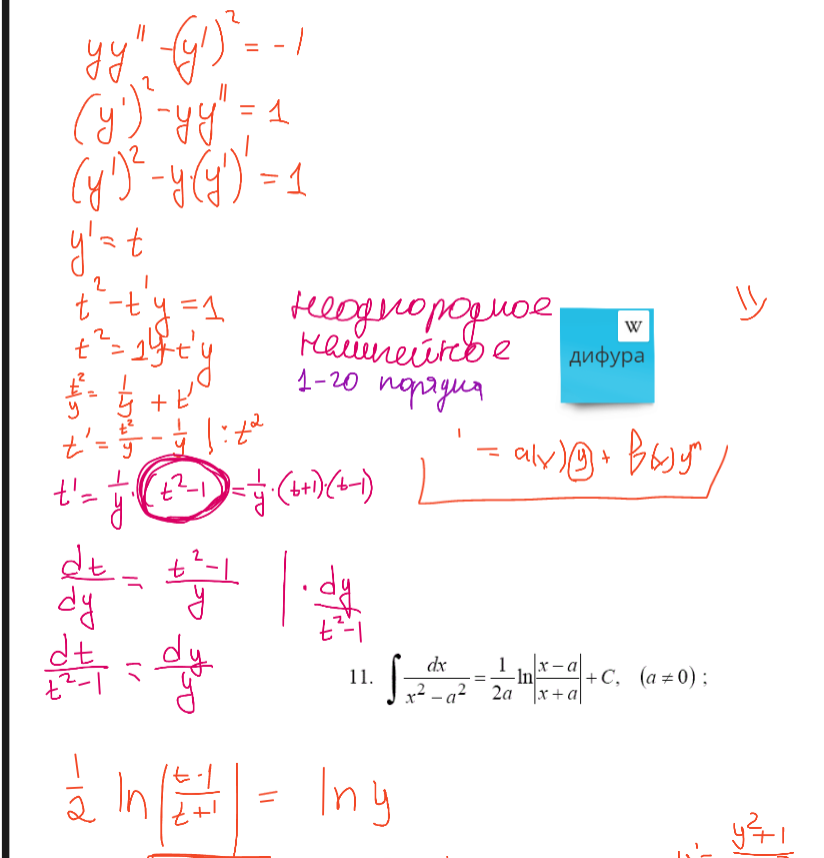 yy'' - (y')² = -1
(y')² - yy'' = 1
(y')² - y·(y')' = 1
y' = t
t² - t'y = 1
t² = 1 + t'y
t²/y = 1/y + t'
t' = t²/y - 1/y | : t²
t' = 1/y · (t²-1) = 1/y · (t+1)·(t-1)
неоднородное
нелинейное
1-го порядка
w
дифура
' = a(x) y + b(x) yⁿ
dt/dy = (t²-1)/y | · dy/(t²-1)
dt/(t²-1) = dy/y
11. ∫ dx/(x² - a²) = 1/(2a) ln|(x - a)/(x + a)| + C, (a ≠ 0) ;
1/2 ln |(t-1)/(t+1)| = ln y
y²+1